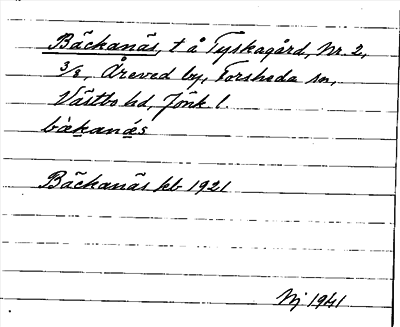 Bäckanäs, t å Tyskagård, Nr. 2,
3/8, Åreved by, Forsheda sn,
Västbo hd, Jönk l.
bàkanás
Bäckanäs kb 1921
Nj 1941